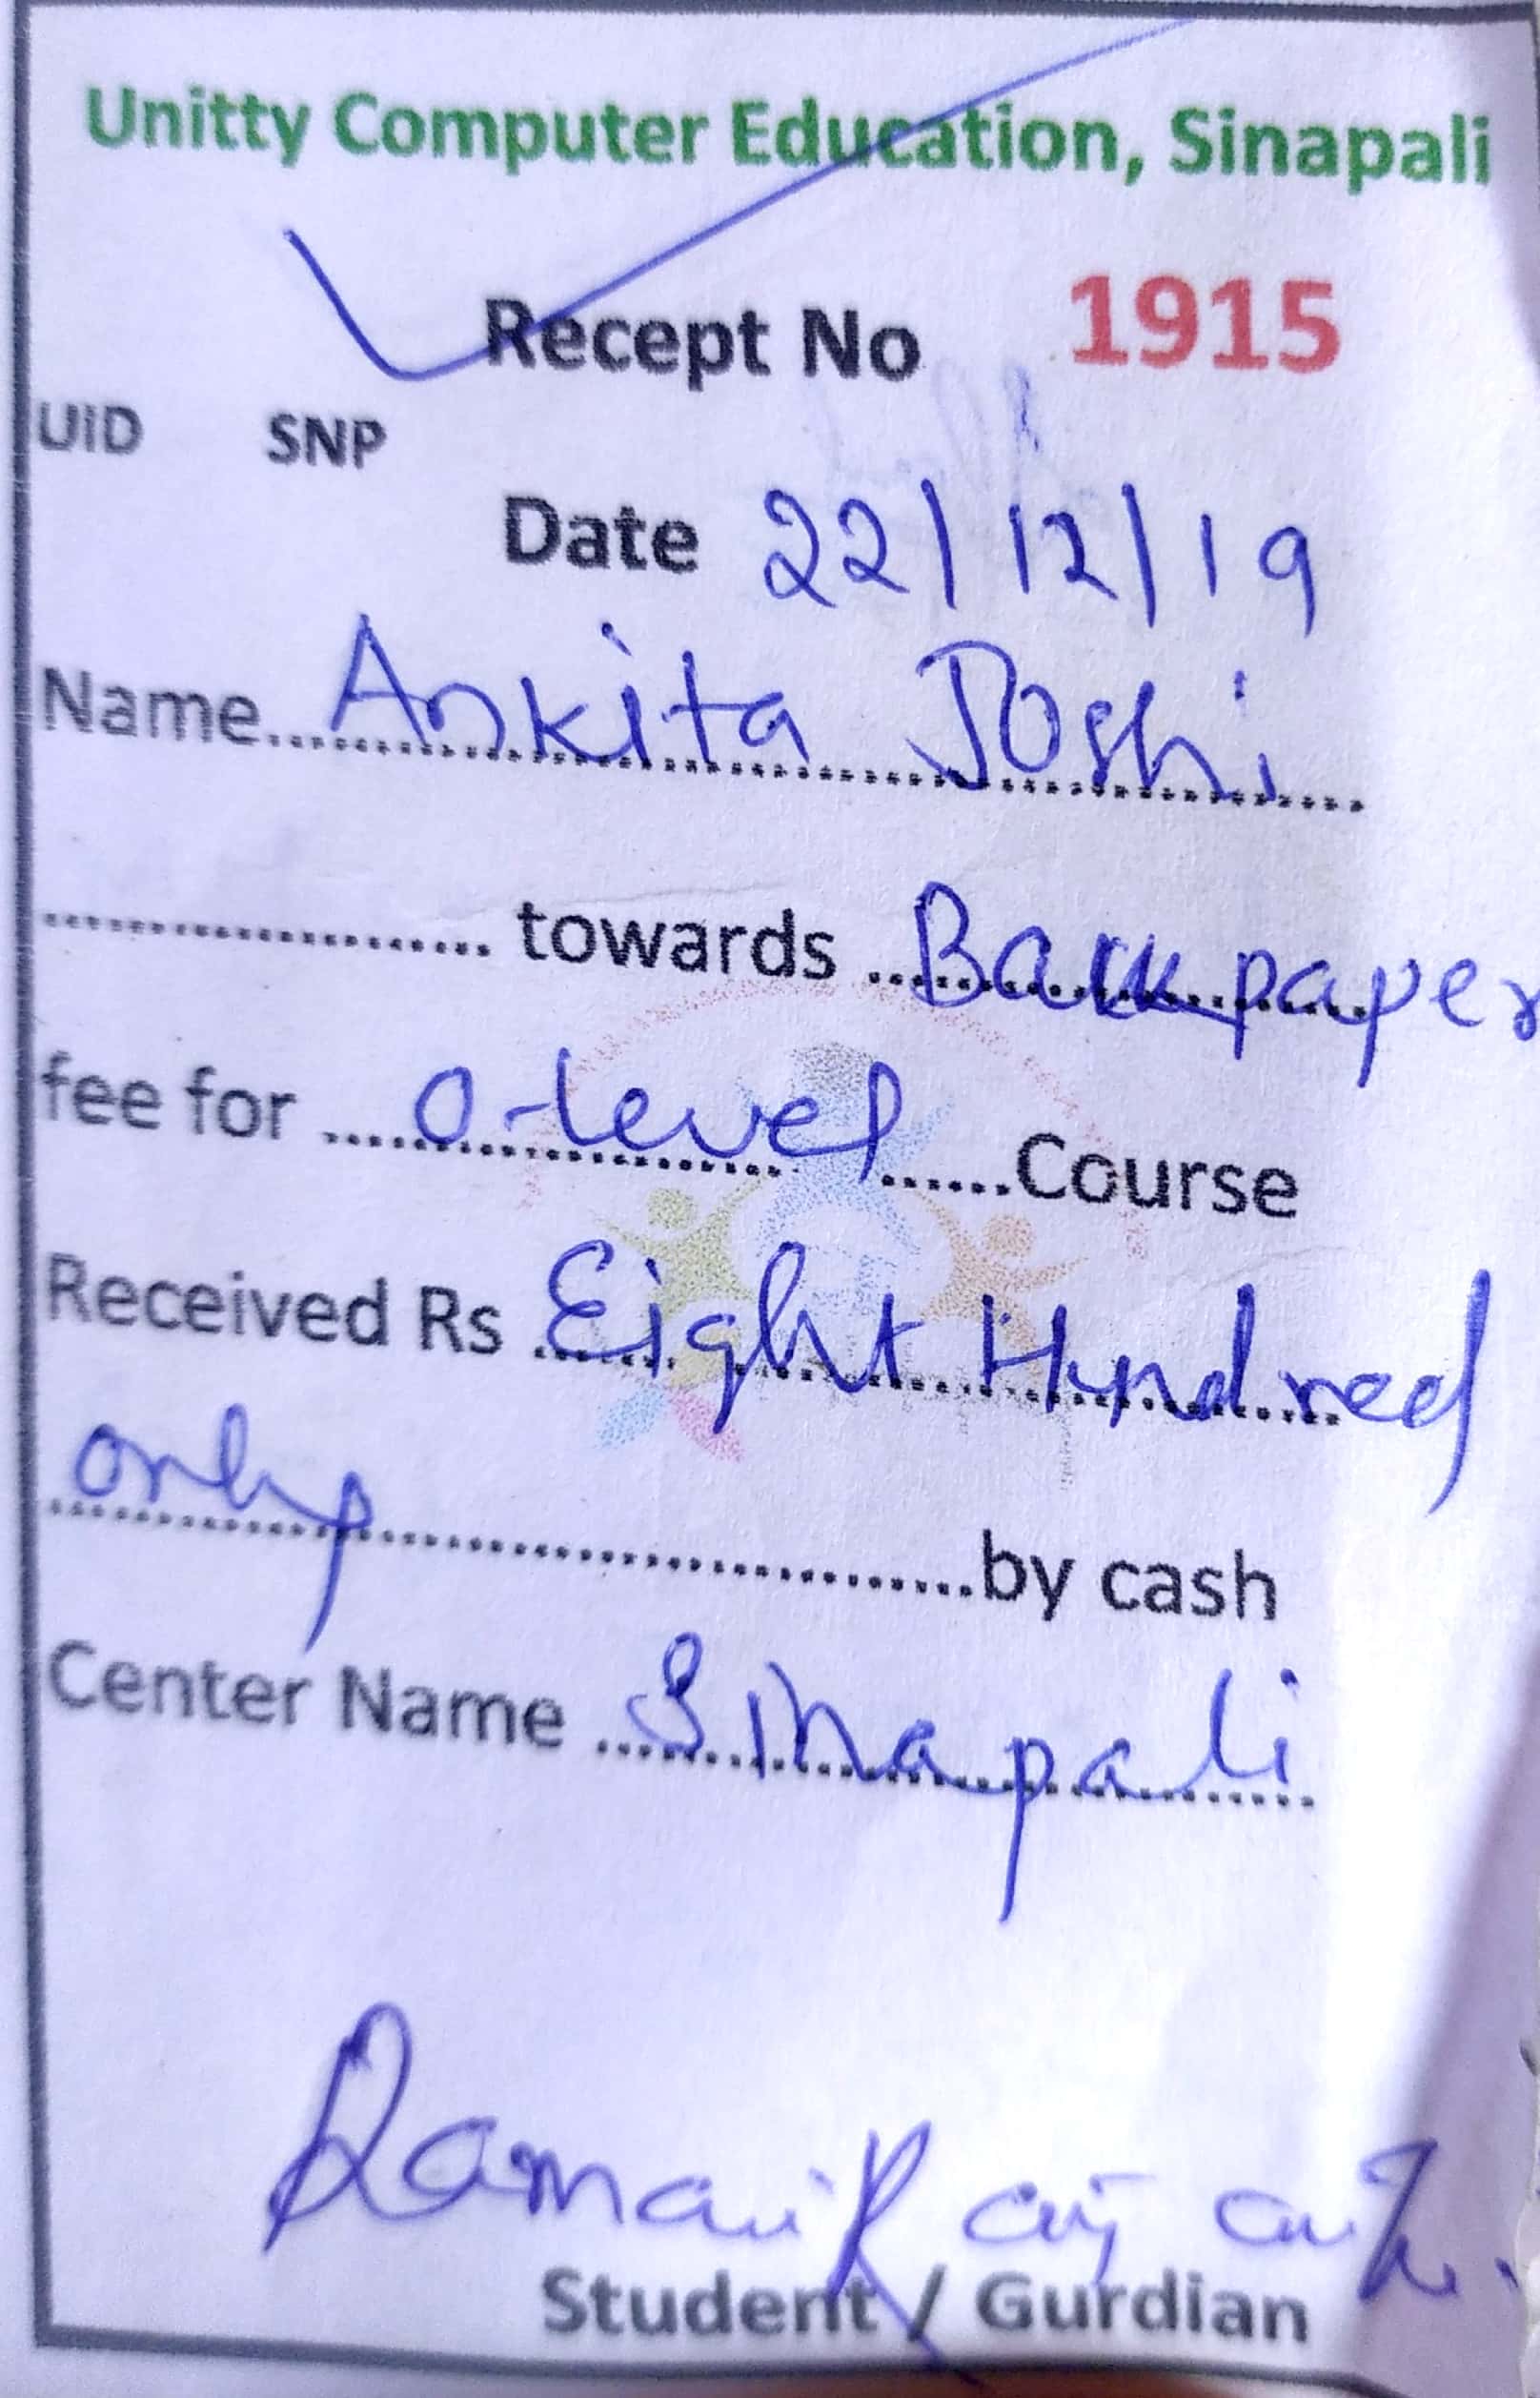 Unitty Computer Education, Sinapali
Recept No 1915
UID SNP
Date 22/12/19
Name Ankita Joshi
towards Back paper
fee for O-level Course
Received Rs Eight Hundred
only by cash
Center Name Sinapali
Student / Gurdian